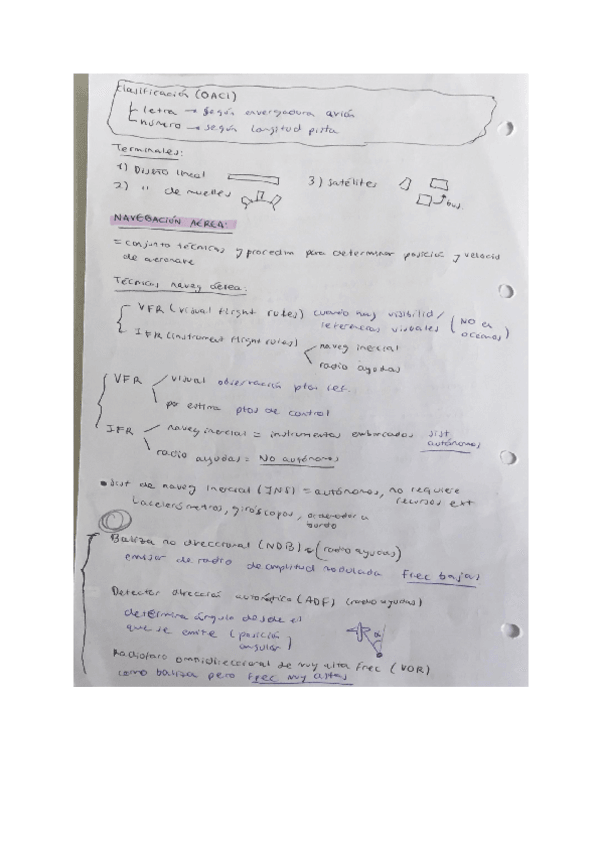 Clasificación (OACI)
letra → según envergadura avión
número → según longitud pista
Terminales:
1) Diseño lineal
2) " de muelles
3) satélites
bus
NAVEGACIÓN AÉREA:
= conjunto técnicas y procedim para determinar posición y velocid
de aeronave
Técnicas naveg aérea:
VFR (visual flight rules) cuando hay visibilid/
referencias visuales (NO en
oceanos)
IFR (instrument flight rules)
naveg inercial
radio ayudas
VFR
visual observación ptos ref.
por estima ptos de control
IFR
naveg inercial = instrumentos embarcados sist.
autónomos
radio ayudas = No autónomos
• sist de naveg inercial (INS) = autónomos, no requiere
recursos ext
acelerómetros, giróscopos, ordenador a
bordo
Baliza no direccional (NDB) (radio ayudas)
emisor de radio de amplitud modulada frec bajas
Detector dirección automático (ADF) (radio ayudas)
determina ángulo desde el
que se emite (posición
angular)
α
Radiofaro omnidireccional de muy alta frec (VOR)
como baliza pero frec muy altas